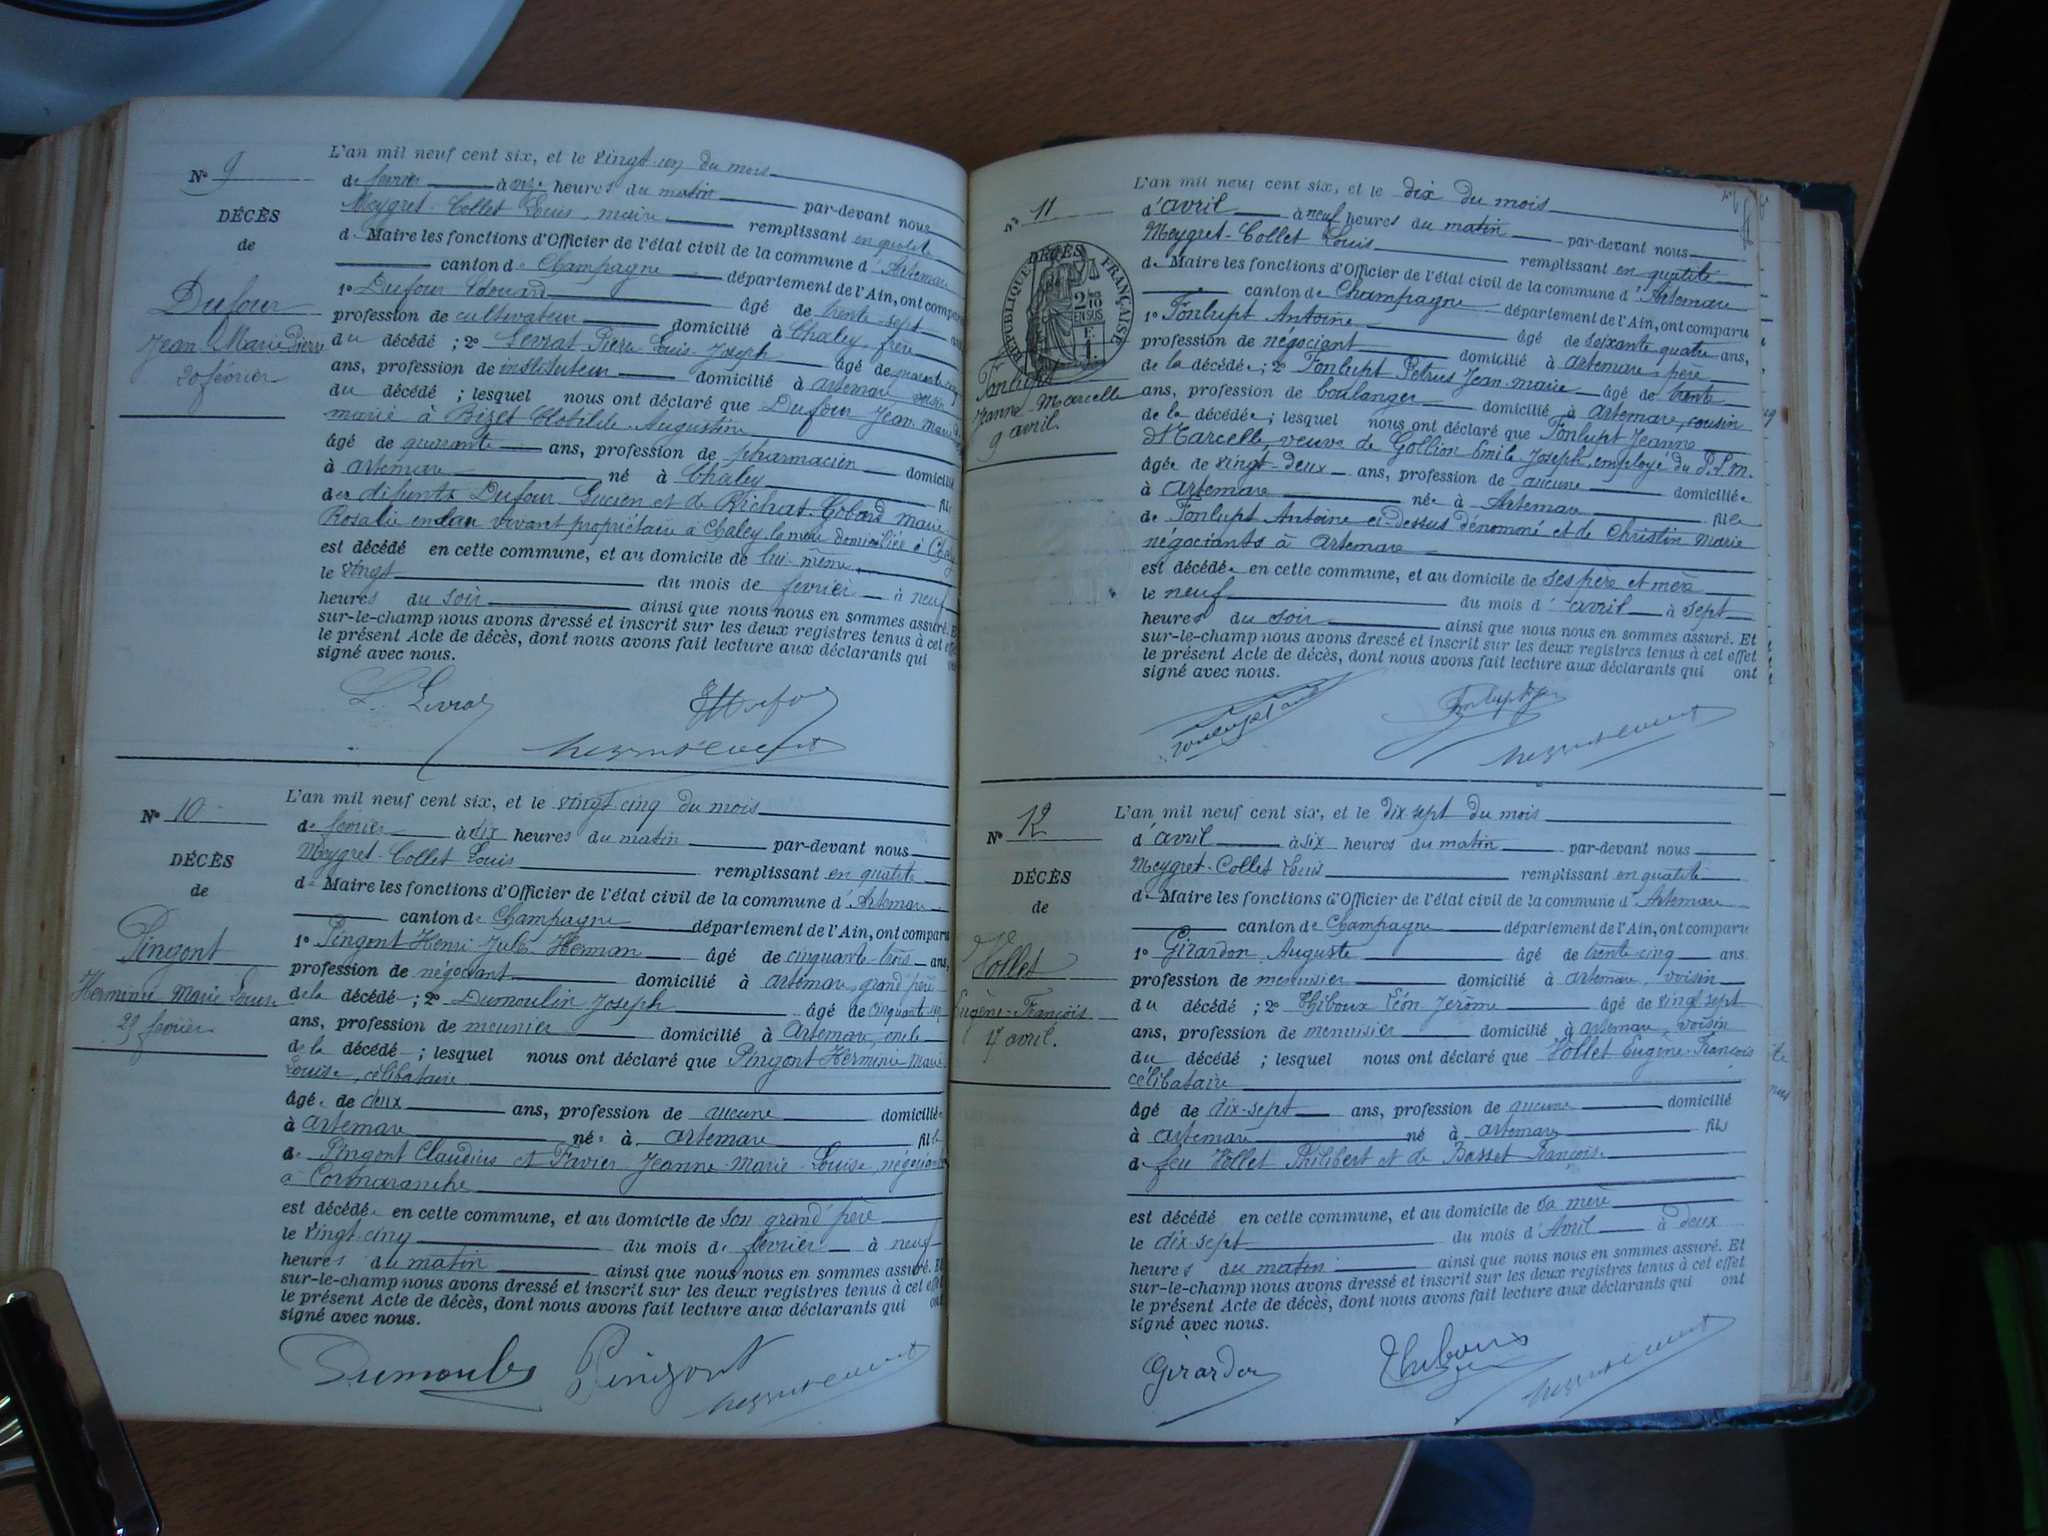 Nº 9
DÉCÈS
de
Dufour
Jean Marie Pierre
20 février
L'an mil neuf cent six, et le vingt un du mois
de février à onze heures du matin par-devant nous
Meygret-Collet Louis, maire remplissant en qualité
de Maire les fonctions d'Officier de l'état civil de la commune d'Artemare
canton de Champagne département de l'Ain, ont comparu
1º Dufour Edouard âgé de trente-sept ans
profession de cultivateur domicilié à Chaley, frère
du décédé ; 2º Levrat Pierre Louis Joseph âgé de quarante cinq
ans, profession de instituteur domicilié à artemare voisin
du décédé ; lesquel nous ont déclaré que Dufour Jean Marie
marié à Bizet Clotilde Augustine
âgé de quarante ans, profession de pharmacien domicilié
à artemare né à Chaley fils
des défunts Dufour Lucien et de Richat Marie
Rosalie en leur vivant propriétaire à Chaley, la mère domiciliée à Chaley
est décédé en cette commune, et au domicile de lui-même
le vingt du mois de février à neuf
heures du soir ainsi que nous nous en sommes assuré. Et
sur-le-champ nous avons dressé et inscrit sur les deux registres tenus à cet effet
le présent Acte de décès, dont nous avons fait lecture aux déclarants qui ont
signé avec nous.
L. Levrat
Nº 10
DÉCÈS
de
Pingont
Herminie Marie Louise
25 février
L'an mil neuf cent six, et le vingt cinq du mois
de février à dix heures du matin par-devant nous
Meygret-Collet Louis remplissant en qualité
de Maire les fonctions d'Officier de l'état civil de la commune d'Artemare
canton de Champagne département de l'Ain, ont comparu
1º Pingont Henri Jules Herman âgé de cinquante-trois ans,
profession de négociant domicilié à artemare grand'père
de la décédé ; 2º Dumoulin Joseph âgé de cinquante-six
ans, profession de meunier domicilié à Artemare, oncle
de la décédé ; lesquel nous ont déclaré que Pingont Herminie Marie
Louise, célibataire
âgée de deux ans, profession de aucune domiciliée
à artemare née à artemare fille
de Pingont Claudius et Favier Jeanne-Marie-Louise négociants
à Cormaranche
est décédée en cette commune, et au domicile de son grand'père
le vingt cinq du mois de février à neuf
heures du matin ainsi que nous nous en sommes assuré. Et
sur-le-champ nous avons dressé et inscrit sur les deux registres tenus à cet effet
le présent Acte de décès, dont nous avons fait lecture aux déclarants qui ont
signé avec nous.
Dumoulin Pingont
Nº 11
DÉCÈS
RÉPUBLIQUE FRANÇAISE
2/10 EN SUS
Fonlupt
Jeanne-Marcelle
9 avril
L'an mil neuf cent six, et le dix du mois
d'avril à neuf heures du matin par-devant nous
Meygret-Collet Louis remplissant en qualité
de Maire les fonctions d'Officier de l'état civil de la commune d'Artemare
canton de Champagne département de l'Ain, ont comparu
1º Fonlupt Antoine âgé de soixante quatre ans,
profession de négociant domicilié à artemare, père
de la décédée ; 2º Fonlupt Petrus Jean-marie âgé de trente
ans, profession de boulanger domicilié à artemare, cousin
de la décédée ; lesquel nous ont déclaré que Fonlupt Jeanne
Marcelle, veuve de Gollion Emile Joseph, employé du P.L.M.
âgée de vingt-deux ans, profession de aucune domiciliée
à Artemare née à Artemare fille
de Fonlupt Antoine ci-dessus dénommé et de Christin Marie
négociants à artemare
est décédée en cette commune, et au domicile de ses père et mère
le neuf du mois d'avril à sept
heures du soir ainsi que nous nous en sommes assuré. Et
sur-le-champ nous avons dressé et inscrit sur les deux registres tenus à cet effet
le présent Acte de décès, dont nous avons fait lecture aux déclarants qui ont
signé avec nous.
Nº 12
DÉCÈS
de
Vollet
Eugène-François
17 avril.
L'an mil neuf cent six, et le dix sept du mois
d'avril à six heures du matin par-devant nous
Meygret-Collet Louis remplissant en qualité
de Maire les fonctions d'Officier de l'état civil de la commune d'Artemare
canton de Champagne département de l'Ain, ont comparu
1º Girardon Auguste âgé de trente-cinq ans
profession de menuisier domicilié à artemare, voisin
du décédé ; 2º Thiboux Léon Jérôme âgé de vingt sept
ans, profession de menuisier domicilié à artemare, voisin
du décédé ; lesquel nous ont déclaré que Vollet Eugène-François
célibataire
âgé de dix-sept ans, profession de aucune domicilié
à artemare né à artemare fils
de feu Vollet Philibert et de Basset Françoise
est décédé en cette commune, et au domicile de sa mère
le dix-sept du mois d'Avril à deux
heures du matin ainsi que nous nous en sommes assuré. Et
sur-le-champ nous avons dressé et inscrit sur les deux registres tenus à cet effet
le présent Acte de décès, dont nous avons fait lecture aux déclarants qui ont
signé avec nous.
Girardon Thiboux